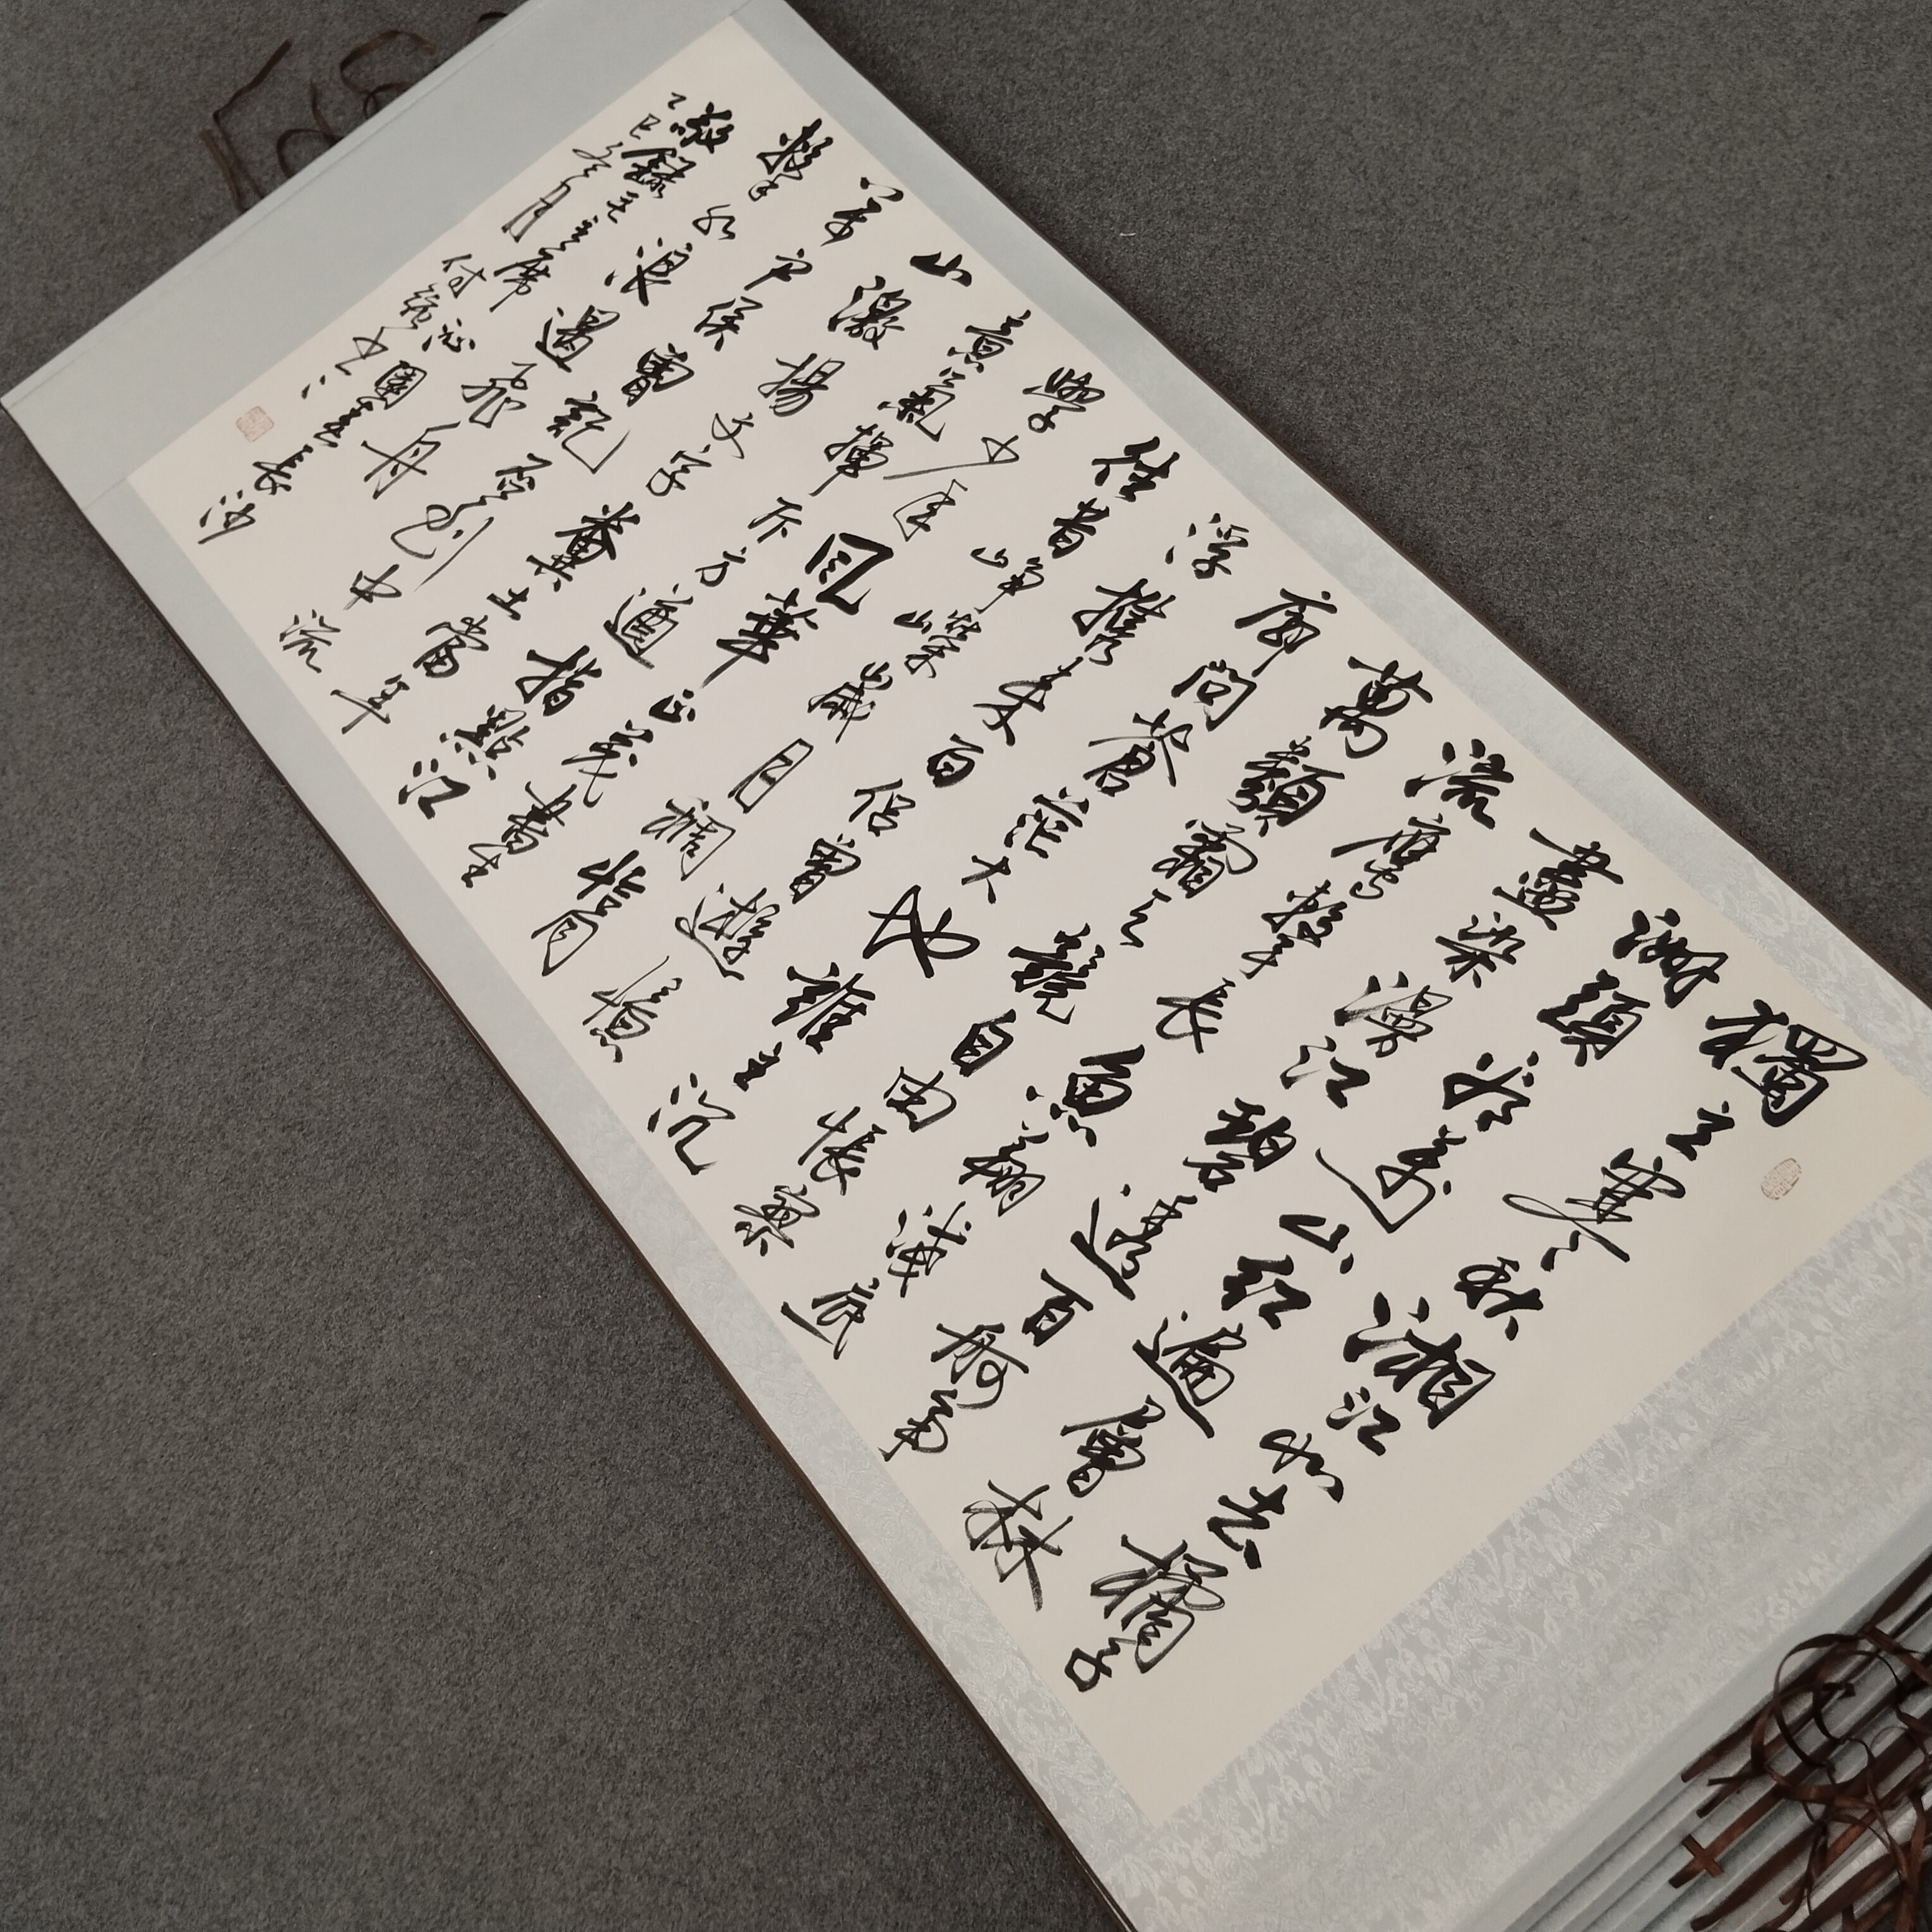 獨立寒秋湘江北去橘子
洲頭看萬山紅遍層林
盡染漫江碧透百舸爭
流鷹擊長魚翔淺底
萬類霜天競自由悵寥
廓問蒼茫大地誰主沉
浮攜來百侶曾遊憶
往昔崢嶸歲月稠恰同
學少年風華正茂書生
意氣揮斥方遒指點江
山激揚文字糞土當年
萬戶侯曾記否到中流
擊水浪遏飛舟
敬錄毛主席沁園春長沙
乙巳冬月付